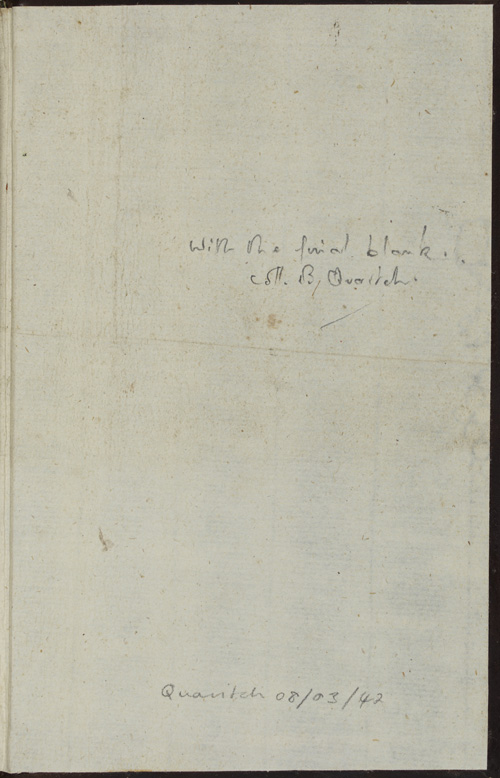 with the final blank.
coll. B, Quaritch.
Quaritch 08/03/42